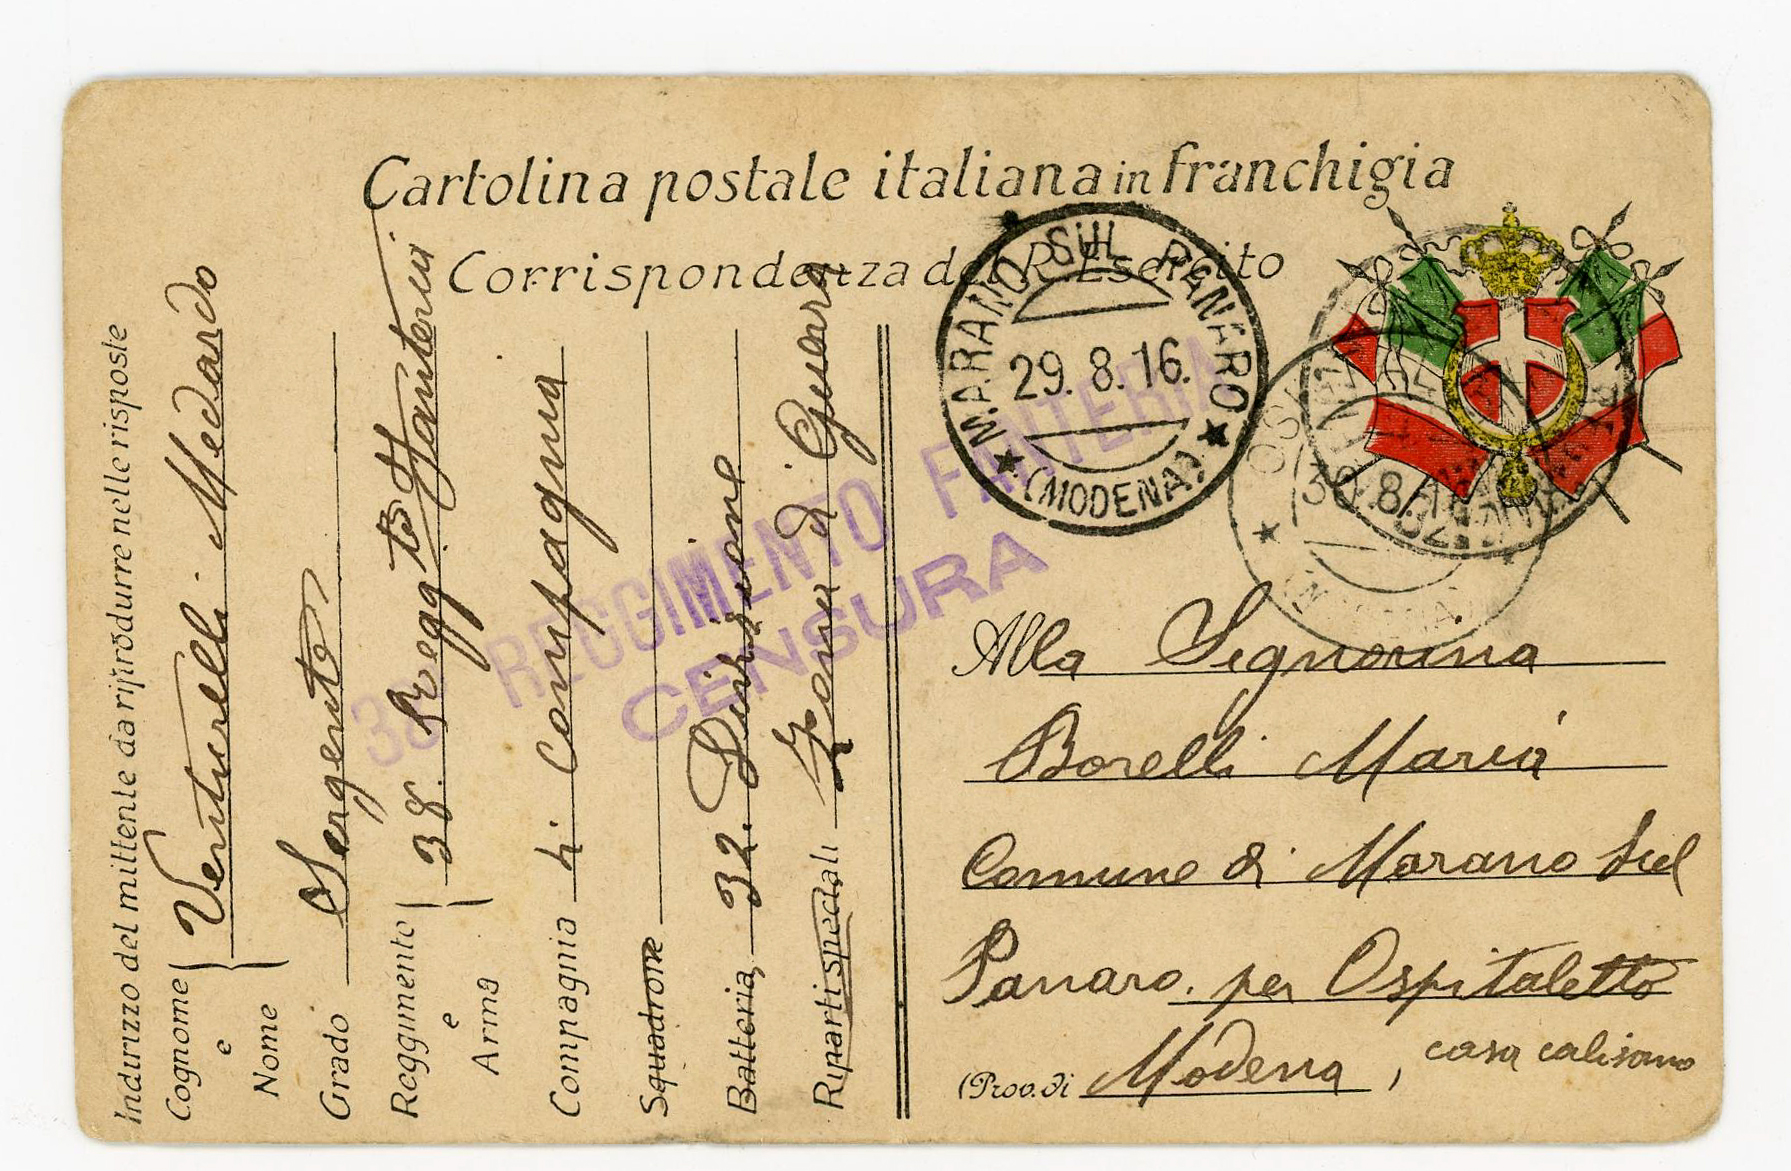 Cartolina postale italiana in franchigia
Corrispondenza del R. Esercito
Indirizzo del mittente da riprodurre nelle risposte
Cognome e Nome Venturelli Medardo
Grado Sergente
Reggimento e Arma 38. Regg.to Fanteria
Compagnia 4. Compagnia
Squadrone
Batteria, 32. Divisione
Riparti speciali Zona di Guerra
38° REGGIMENTO FANTERIA
CENSURA
MARANO SUL PANARO
29.8.16.
(MODENA)
30.8.16
Alla Signorina
Borelli Maria
Comune di Marano Sul
Panaro. per Ospitaletto
(Prov. di Modena, casa calisano